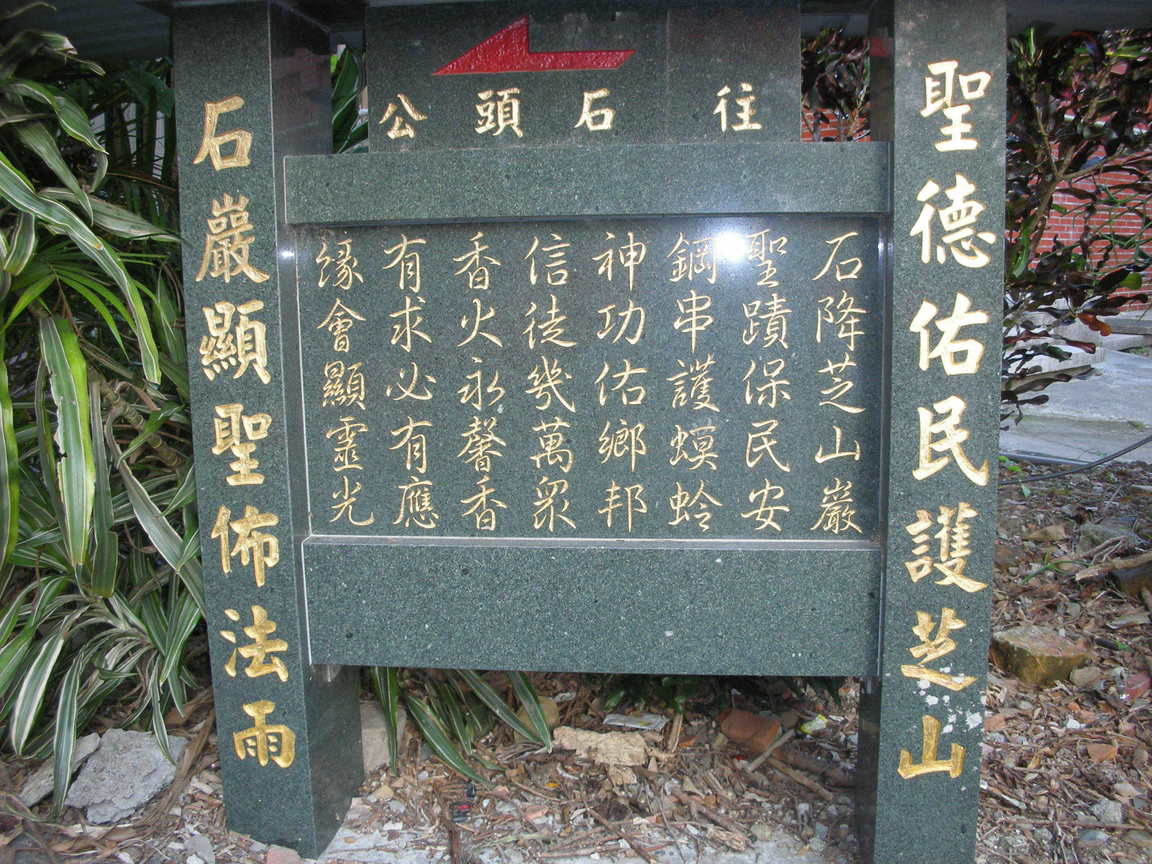 往石頭公
聖德佑民護芝山
石降芝山巖
聖蹟保民安
鋼串護蟆蛉
神功佑鄉邦
信徒幾萬眾
香火永馨香
有求必有應
緣會顯靈光
石巖顯聖佈法雨